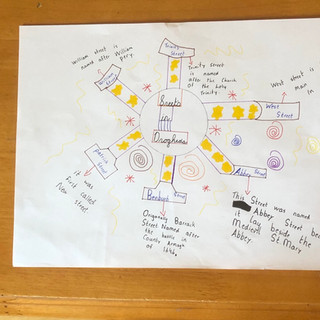 William street is
named after William
pery
Trinity Street
Trinity Street
is named
after the Church
of the holy
Trinity
West street is
main
West
Street
William Street
Streets
in
Drogheda
it was
first called
New
street
Abbey Street
Originally Barrack
Street Named after
the battle in
County Armagh
of 1646.
This Street was named
Abbey Street
it lay beside the
Abbey St. Mary